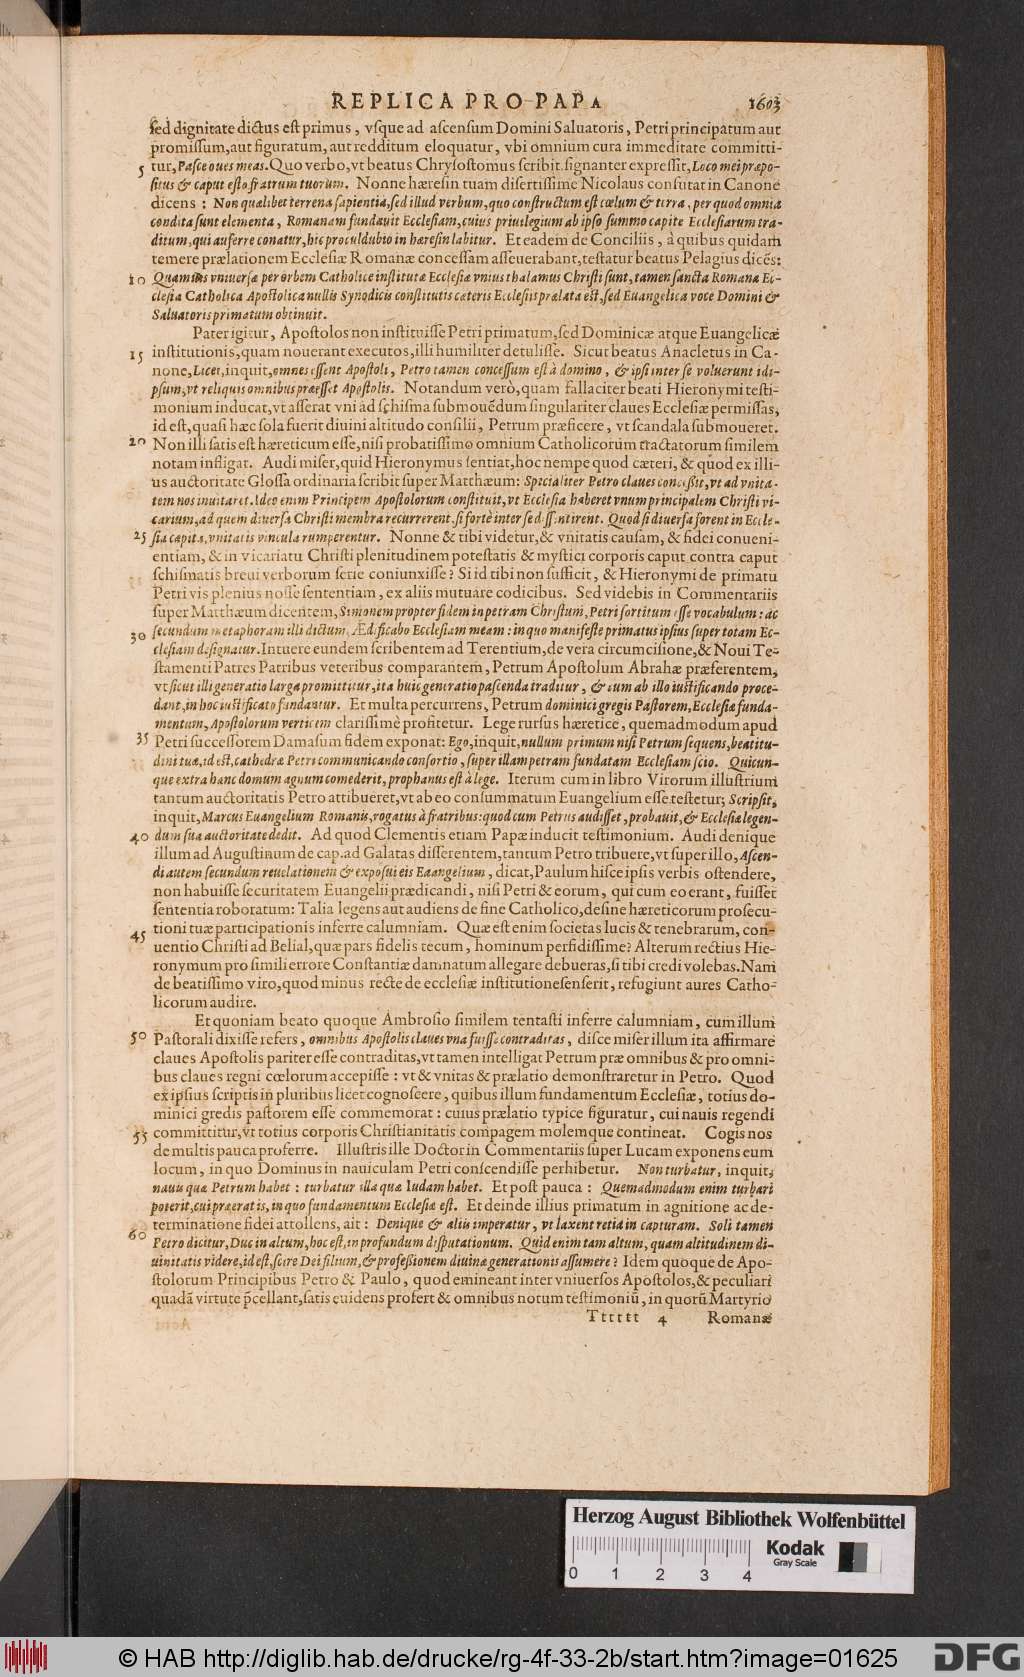 REPLICA PRO PAPA 1603
sed dignitate dictus est primus, vsque ad ascensum Domini Saluatoris, Petri principatum aut
promissum, aut figuratum, aut redditum eloquatur, vbi omnium cura immeditate committi-
5 tur, Pasce oues meas. Quo verbo, vt beatus Chrysostomus scribit. signanter expressit, Loco mei præpo-
situs & caput esto fratrum tuorum. Nonne hæresin tuam disertissime Nicolaus confutat in Canone
dicens: Non quælibet terrena sapientia, sed illud verbum, quo constructum est cœlum & terra, per quod omnia
condita sunt elementa, Romanam fundauit Ecclesiam, cuius priuilegium ab ipso summo capite Ecclesiarum tra-
ditum, qui auferre conatur, hic proculdubio in hæresin labitur. Et eadem de Conciliis, à quibus quidam
temere prælationem Ecclesiæ Romanæ concessam asseuerabant, testatur beatus Pelagius dicēs:
10 Quamuis vniuersæ per orbem Catholice institutæ Ecclesiæ vnius thalamus Christi sunt, tamen sancta Romana Ec-
clesia Catholica Apostolica nullis Synodicis constitutis cæteris Ecclesiis prælata est, sed Euangelica voce Domini &
Saluatoris primatum obtinuit.
Pater igitur, Apostolos non instituisse Petri primatum, sed Dominicæ atque Euangelicæ
15 institutionis, quam nouerant executos, illi humiliter detulisse. Sicut beatus Anacletus in Ca-
none, Licet, inquit, omnes essent Apostoli, Petro tamen concessum est à domino, & ipsi inter se voluerunt idi-
psum, vt reliquis omnibus præesset Apostolis. Notandum verò, quam fallaciter beati Hieronymi testi-
monium inducat, vt asserat vni ad schisma submouēdum singulariter claues Ecclesiæ permissas,
id est, quasi hæc sola fuerit diuini altitudo consilii, Petrum præficere, vt scandala submoueret.
20 Non illi satis est hæreticum esse, nisi probatissimo omnium Catholicorum tractatorum similem
notam infligat. Audi miser, quid Hieronymus sentiat, hoc nempe quod cæteri, & quod ex illi-
us auctoritate Glossa ordinaria scribit super Matthæum: Specialiter Petro claues concessit, vt ad vnita-
tem nos inuitaret. Ideo enim Principem Apostolorum constituit, vt Ecclesia haberet vnum principalem Christi vi-
carium, ad quem diuersa Christi membra recurrerent, si fortè inter se dissentirent. Quod si diuersa forent in Eccle-
25 sia capita, vnitatis vincula rumperentur. Nonne & tibi videtur, & vnitatis causam, & fidei conueni-
entiam, & in vicariatu Christi plenitudinem potestatis & mystici corporis caput contra caput
schismatis breui verborum serie coniunxisse? Si id tibi non sufficit, & Hieronymi de primatu
Petri vis plenius nosse sententiam, ex aliis mutuare codicibus. Sed videbis in Commentariis
super Matthæum dicentem, Simonem propter fidem in petram Christum, Petri sortitum esse vocabulum: ac
30 secundum metaphoram illi dictum, Ædificabo Ecclesiam meam: in quo manifeste primatus ipsius super totam Ec-
clesiam designatur. Intuere eundem scribentem ad Terentium, de vera circumcisione, & Noui Te-
stamenti Patres Patribus veteribus comparantem, Petrum Apostolum Abrahæ præferentem,
vt sicut illi generatio larga promittitur, ita huic generatio pascenda traditur, & cum ab illo iustificando proce-
dant, in hoc iustificato fundantur. Et multa percurrens, Petrum dominici gregis Pastorem, Ecclesiæ funda-
mentum, Apostolorum verticem clarissimè profitetur. Lege rursus hæretice, quemadmodum apud
35 Petri successorem Damasum fidem exponat: Ego, inquit, nullum primum nisi Petrum sequens, beatitu-
dini tuæ, id est, cathedræ Petri communicando consortio, super illam petram fundatam Ecclesiam scio. Quicun-
que extra hanc domum agnum comederit, prophanus est à lege. Iterum cum in libro Virorum illustrium
tantum auctoritatis Petro attibueret, vt ab eo consummatum Euangelium esse testetur; Scripsit,
inquit, Marcus Euangelium Romanis, rogatus à fratribus: quod cum Petrus audisset, probauit, & Ecclesiæ legen-
40 dum sua auctoritate dedit. Ad quod Clementis etiam Papæ inducit testimonium. Audi denique
illum ad Augustinum de cap. ad Galatas disserentem, tantum Petro tribuere, vt super illo, Ascen-
di autem secundum reuelationem & exposui eis Euangelium, dicat, Paulum hisce ipsis verbis ostendere,
non habuisse securitatem Euangelii prædicandi, nisi Petri & eorum, qui cum eo erant, fuisset
sententia roboratum: Talia legens aut audiens desine Catholico, desine hæreticorum prosecu-
45 tioni tuæ participationis inferre calumniam. Quæ est enim societas lucis & tenebrarum, con-
uentio Christi ad Belial, quæ pars fidelis tecum, hominum perfidissime? Alterum rectius Hie-
ronymum pro simili errore Constantiæ damnatum allegare debueras, si tibi credi volebas. Nam
de beatissimo viro, quod minus recte de ecclesiæ institutione senserit, refugiunt aures Catho-
licorum audire.
Et quoniam beato quoque Ambrosio similem tentasti inferre calumniam, cum illum
50 Pastorali dixisse refers, omnibus Apostolis claues vna fuisse contraditas, disce miser illum ita affirmare
claues Apostolis pariter esse contraditas, vt tamen intelligat Petrum præ omnibus & pro omni-
bus claues regni cœlorum accepisse: vt & vnitas & prælatio demonstraretur in Petro. Quod
ex ipsius scriptis in pluribus licet cognoscere, quibus illum fundamentum Ecclesiæ, totius do-
minici gredis pastorem esse commemorat: cuius prælatio typice figuratur, cui nauis regendi
55 committitur, vt totius corporis Christianitatis compagem molemque contineat. Cogis nos
de multis pauca proferre. Illustris ille Doctor in Commentariis super Lucam exponens eum
locum, in quo Dominus in nauiculam Petri conscendisse perhibetur. Non turbatur, inquit,
nauis quæ Petrum habet: turbatur illa quæ Iudam habet. Et post pauca: Quemadmodum enim turbari
poterit, cui præerat is, in quo fundamentum Ecclesiæ est. Et deinde illius primatum in agnitione ac de-
terminatione fidei attollens, ait: Denique & aliis imperatur, vt laxent retia in capturam. Soli tamen
60 Petro dicitur, Duc in altum, hoc est, in profundum disputationum. Quid enim tam altum, quam altitudinem di-
uinitatis videre, id est, scire Dei filium, & professionem diuinæ generationis assumere? Idem quoque de Apo-
stolorum Principibus Petro & Paulo, quod emineant inter vniuersos Apostolos, & peculiari
quadā virtute p̄cellant, satis euidens profert & omnibus notum testimoniū, in quorū Martyrio
Tttttt 4 Romanæ
Herzog August Bibliothek Wolfenbüttel
Kodak
Gray Scale
0 1 2 3 4
© HAB http://diglib.hab.de/drucke/rg-4f-33-2b/start.htm?image=01625
DFG